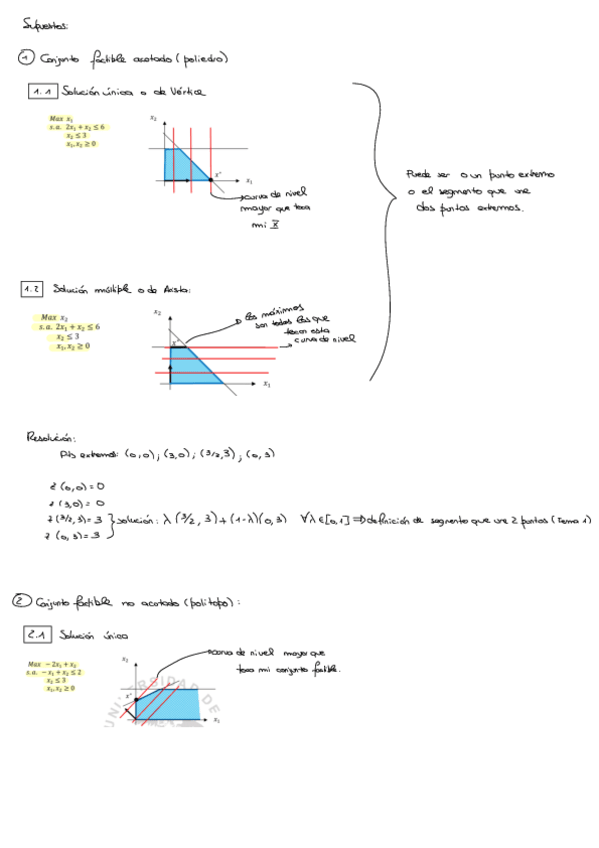 Supuestos:
① Conjunto factible acotado (poliedro)
1.1 Solución única o de Vértice
Max x₁
s.a. 2x₁ + x₂ ≤ 6
x₂ ≤ 3
x₁, x₂ ≥ 0
x₂
x*
x₁
curva de nivel
mayor que toca
mi X
Puede ser o un punto extremo
o el segmento que une
dos puntos extremos.
1.2 Solución múltiple o de Arista:
Max x₂
s.a. 2x₁ + x₂ ≤ 6
x₂ ≤ 3
x₁, x₂ ≥ 0
x₂
x*
x₁
Los máximos
son todos los que
tocan esta
curva de nivel
Resolución:
Pts extremos: (0,0) ; (3,0) ; (3/2,3) ; (0,3)
z (0,0) = 0
z (3,0) = 0
z (3/2,3) = 3
z (0,3) = 3
} solución: λ (3/2, 3) + (1-λ)(0,3) ∀λ∈[0,1] ⟹ definición de segmento que une 2 puntos (Tema 1)
② Conjunto factible no acotado (politopo):
2.1 Solución única
Max −2x₁ + x₂
s.a. −x₁ + x₂ ≤ 2
x₂ ≤ 3
x₁, x₂ ≥ 0
x₂
x*
x₁
curva de nivel mayor que
toca mi conjunto factible.